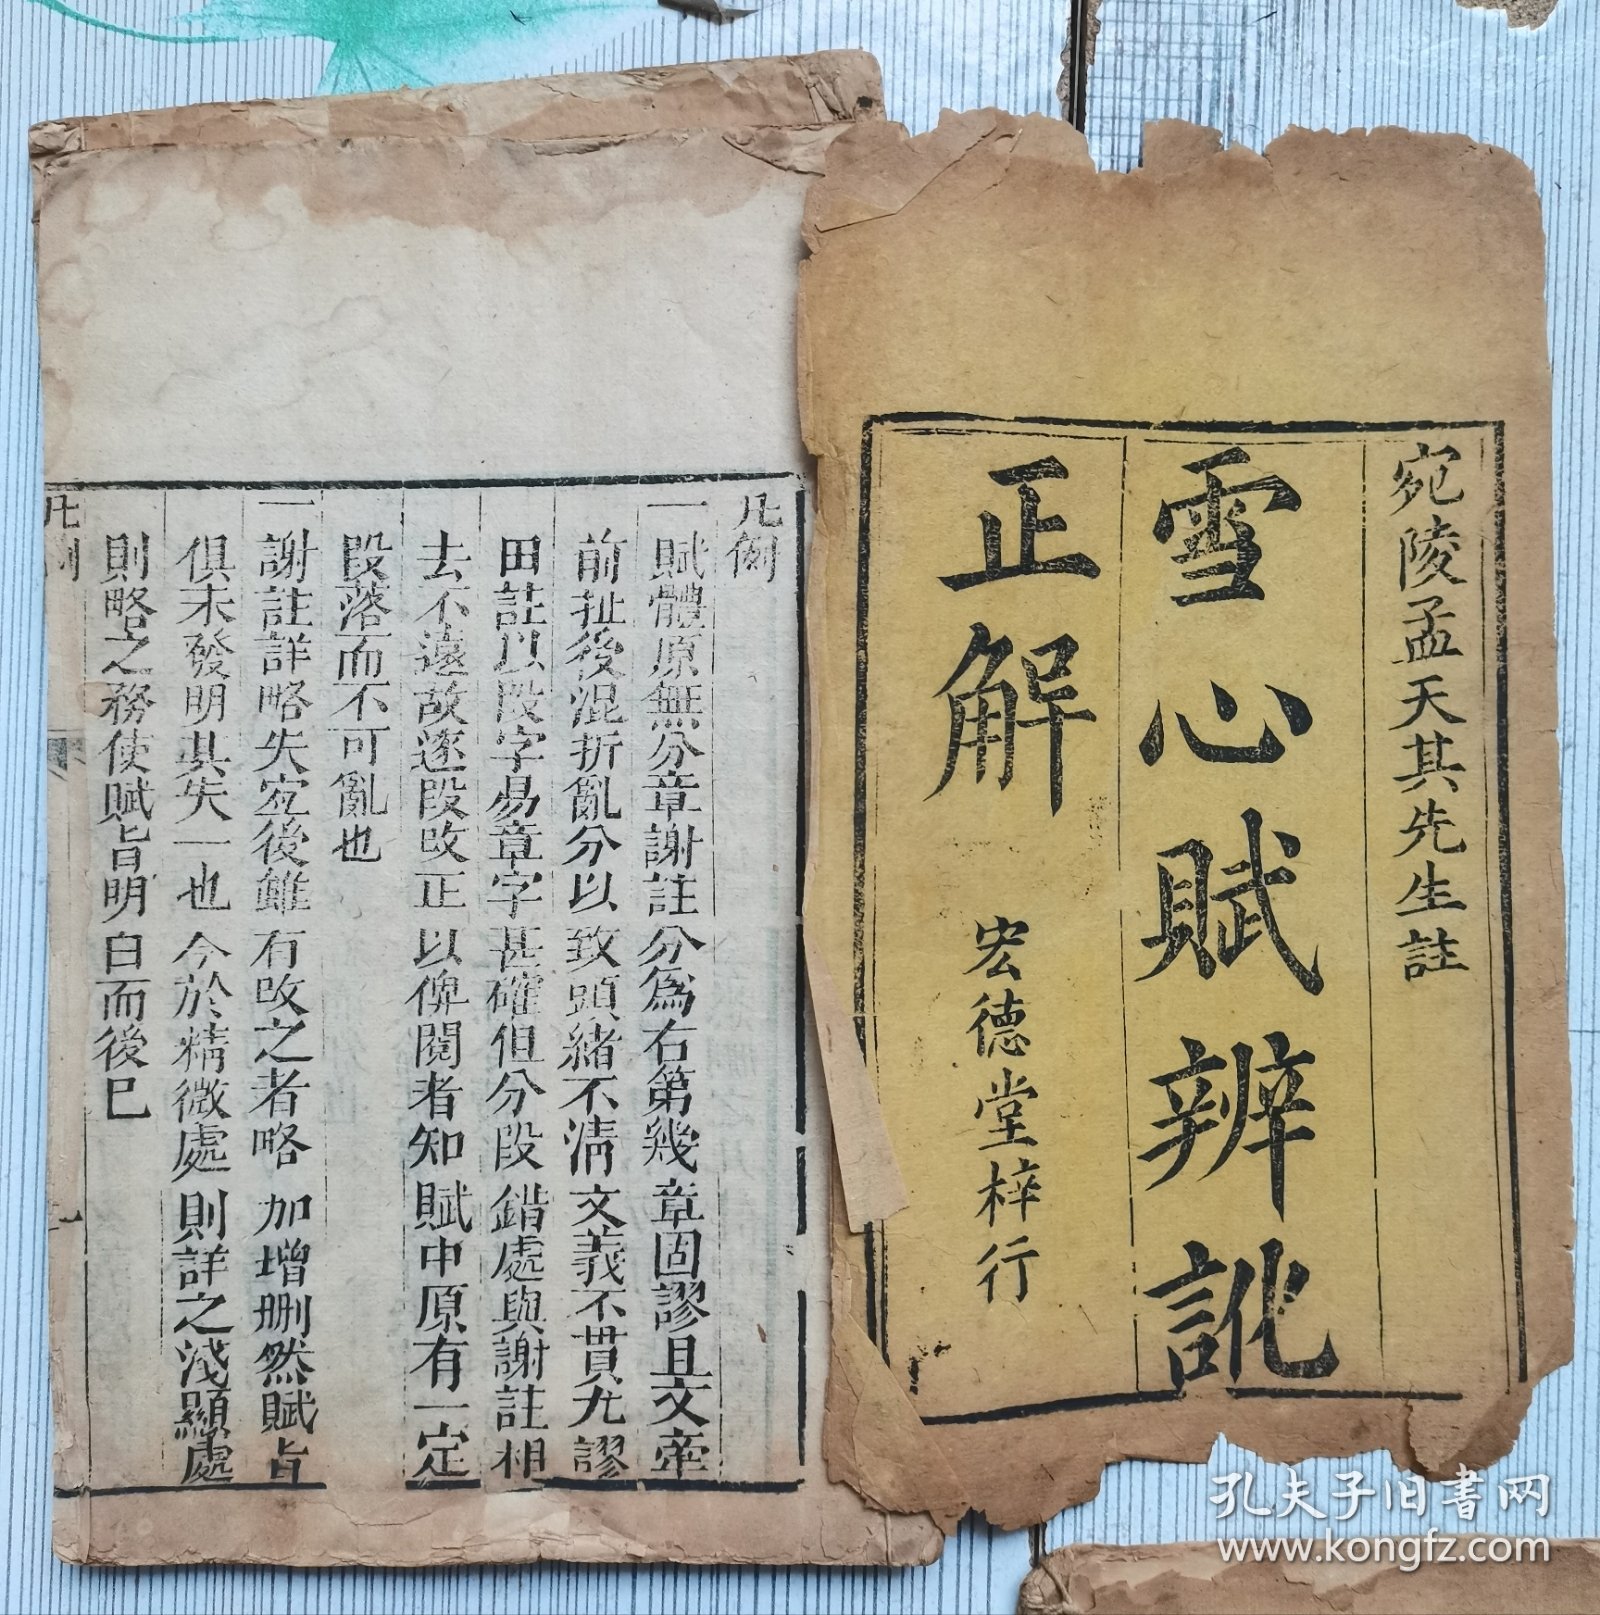 宛陵孟天其先生註
雪心賦辨訛
正解
宏德堂梓行
凡例
一賦體原無分章謝註分爲右第幾章固謬且文牽
前扯後混折亂分以致頭緒不清文義不貫尤謬
田註以段字易章字甚確但分段錯處與謝註相
去不遠故逐段改正以俾閱者知賦中原有一定
段落而不可亂也
一謝註詳略失宜後雖有改之者略加增删然賦旨
俱未發明其失一也今於精微處則詳之淺顯處
則略之務使賦旨明白而後已
凡例
一
孔夫子旧书网
www.kongfz.com